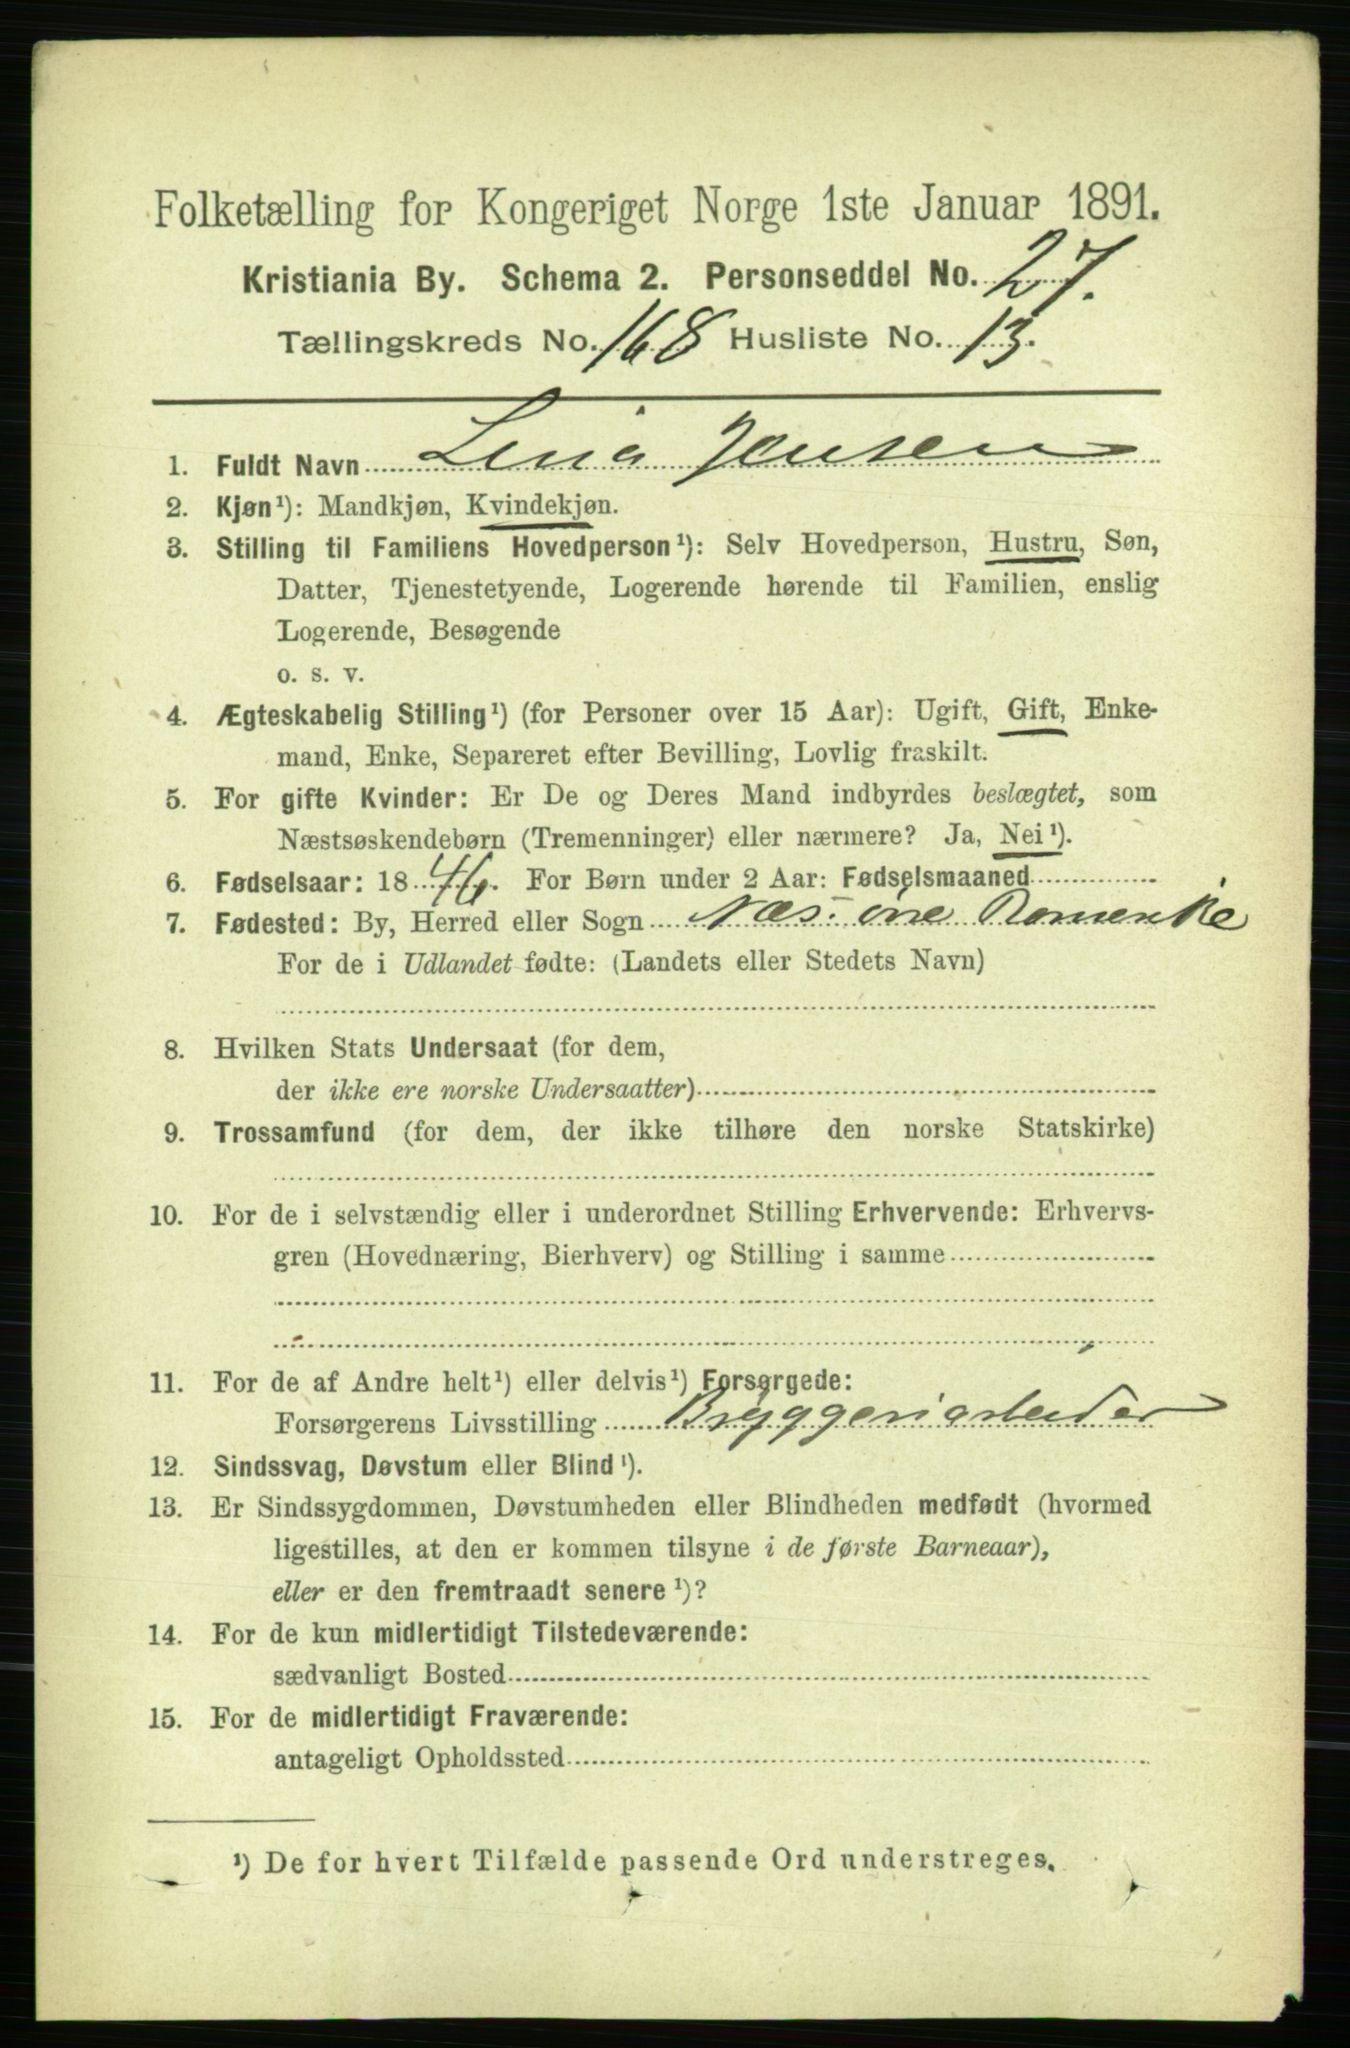 Folketælling for Kongeriget Norge 1ste Januar 1891.
Kristiania By. Schema 2. Personseddel No. 27.
Tællingskreds No. 168 Husliste No. 13.
1. Fuldt Navn Lina Jensen
2. Kjøn¹): Mandkjøn, Kvindekjøn.
3. Stilling til Familiens Hovedperson¹): Selv Hovedperson, Hustru, Søn,
Datter, Tjenestetyende, Logerende hørende til Familien, enslig
Logerende, Besøgende
o. s. v.
4. Ægteskabelig Stilling¹) (for Personer over 15 Aar): Ugift, Gift, Enke-
mand, Enke, Separeret efter Bevilling, Lovlig fraskilt.
5. For gifte Kvinder: Er De og Deres Mand indbyrdes beslægtet, som
Næstsøskendebørn (Tremenninger) eller nærmere? Ja, Nei¹).
6. Fødselsaar: 1846. For Børn under 2 Aar: Fødselsmaaned
7. Fødested: By, Herred eller Sogn Næs. øvre Romerike
For de i Udlandet fødte: (Landets eller Stedets Navn)
8. Hvilken Stats Undersaat (for dem,
der ikke ere norske Undersaatter)
9. Trossamfund (for dem, der ikke tilhøre den norske Statskirke)
10. For de i selvstændig eller i underordnet Stilling Erhvervende: Erhvervs-
gren (Hovednæring, Bierhverv) og Stilling i samme
11. For de af Andre helt¹) eller delvis¹) Forsørgede:
Forsørgerens Livsstilling Bryggeriarbeider
12. Sindssvag, Døvstum eller Blind¹).
13. Er Sindssygdommen, Døvstumheden eller Blindheden medfødt (hvormed
ligestilles, at den er kommen tilsyne i de første Barneaar),
eller er den fremtraadt senere¹)?
14. For de kun midlertidigt Tilstedeværende:
sædvanligt Bosted
15. For de midlertidigt Fraværende:
antageligt Opholdssted
¹) De for hvert Tilfælde passende Ord understreges.